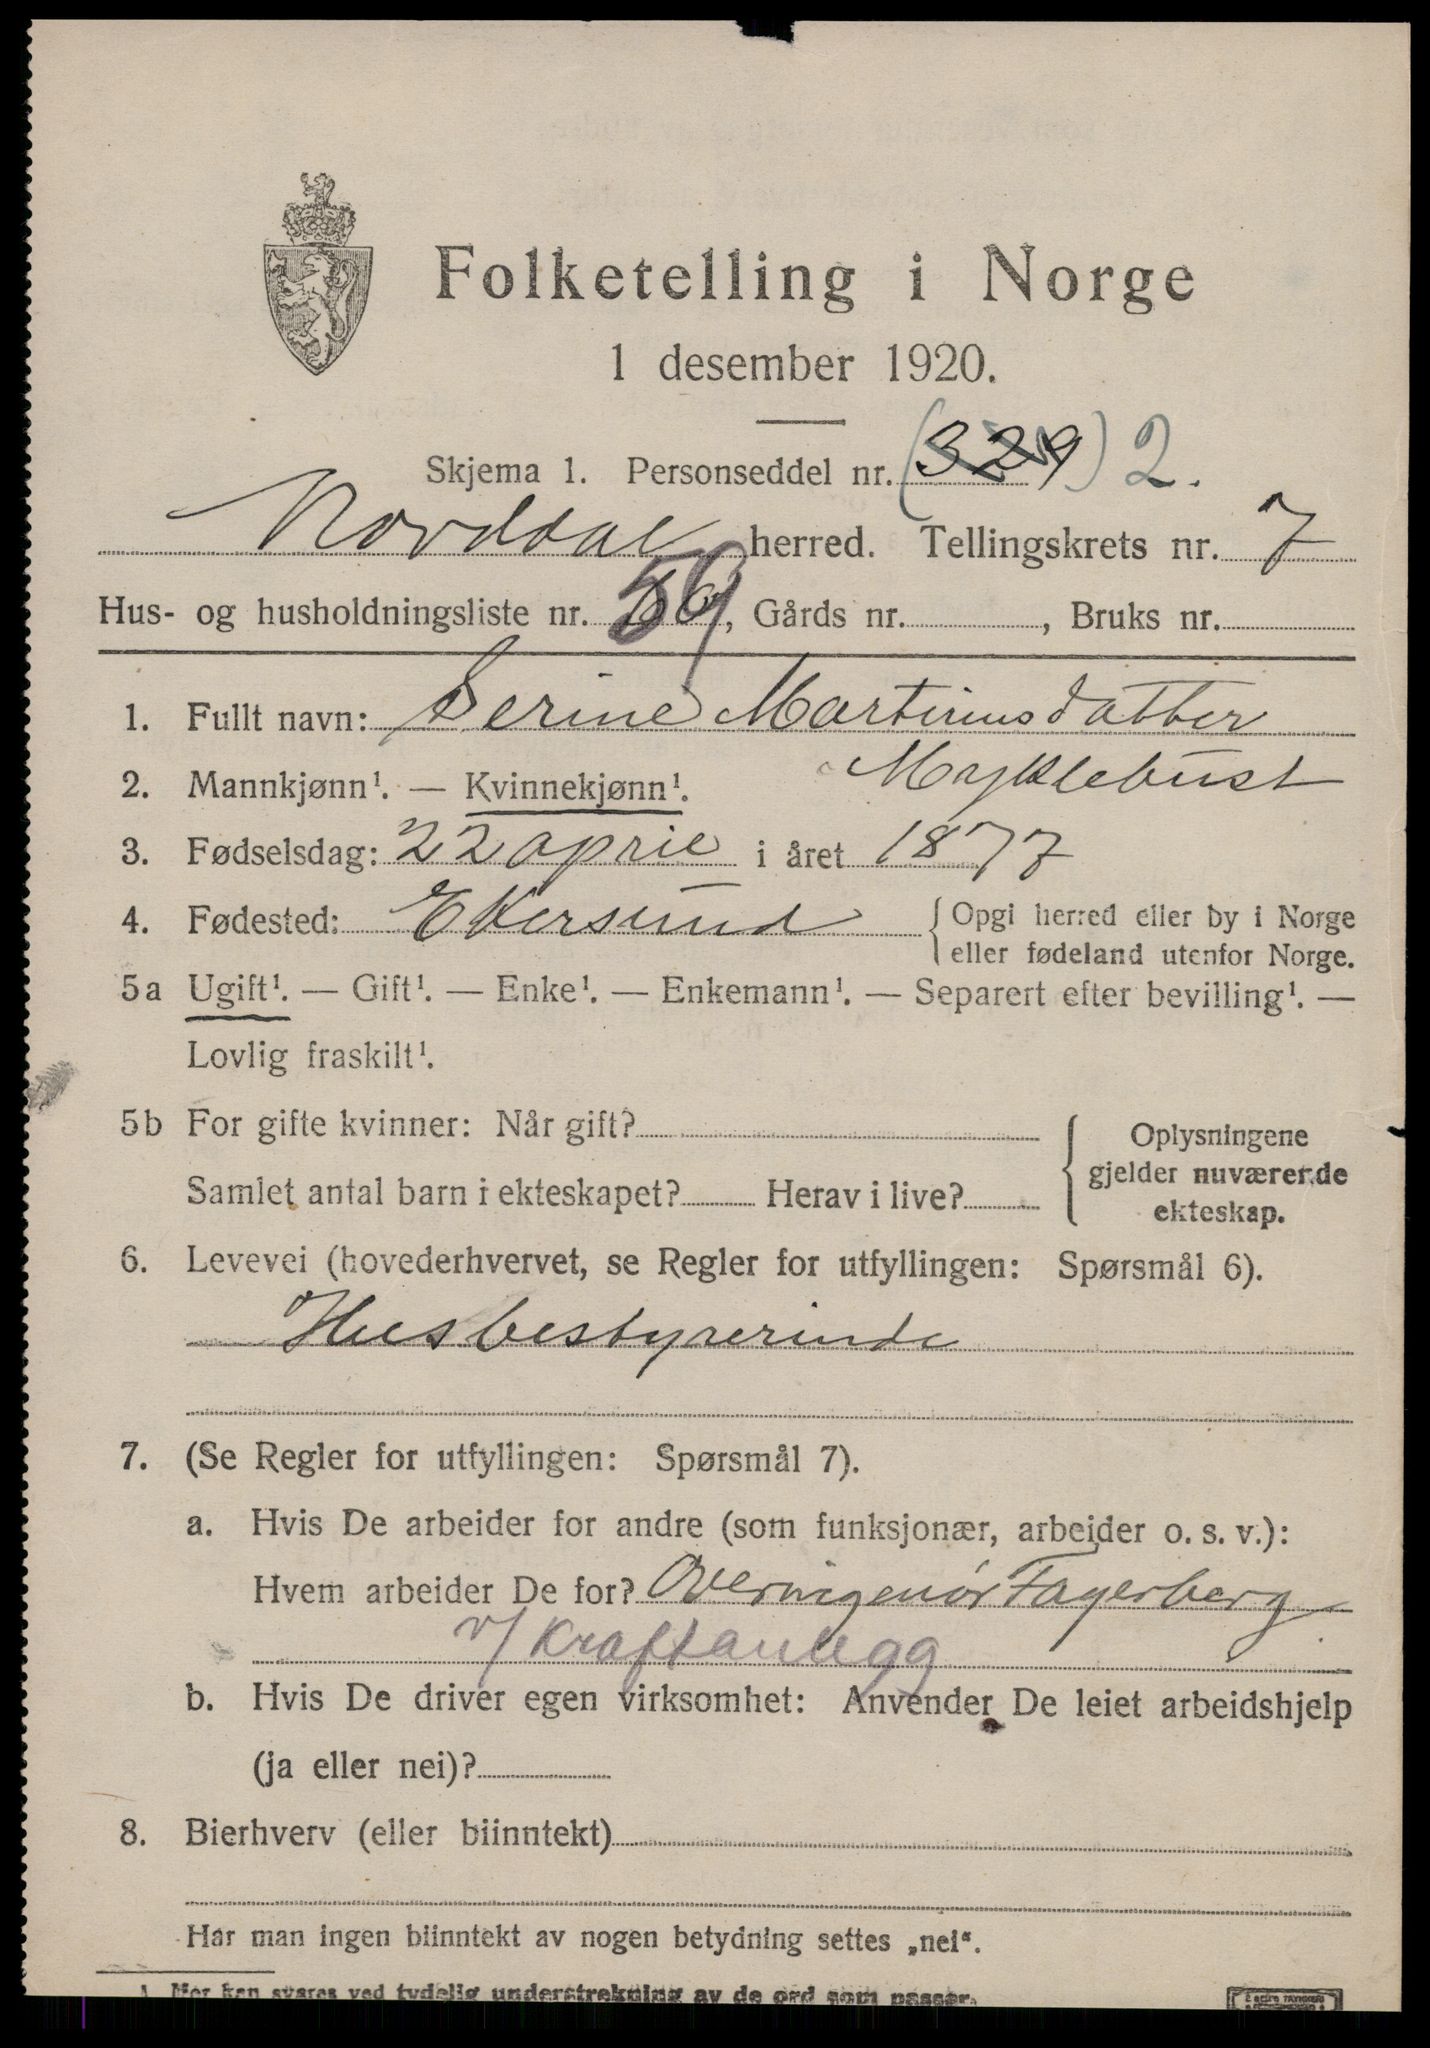 Folketelling i Norge
1 desember 1920.
Skjema 1. Personseddel nr. (329) 2.
Norddal herred. Tellingskrets nr. 7
Hus- og husholdningsliste nr. 59, Gårds nr. , Bruks nr.
1. Fullt navn: Serine Martinusdatter
Myklebust
2. Mannkjønn¹. — Kvinnekjønn¹.
3. Fødselsdag: 22 april i året 1877
4. Fødested: Ekersund { Opgi herred eller by i Norge
eller fødeland utenfor Norge.
5a Ugift¹. — Gift¹. — Enke¹. — Enkemann¹. — Separert efter bevilling¹. —
Lovlig fraskilt¹.
5b For gifte kvinner: Når gift?
Samlet antal barn i ekteskapet? Herav i live?
Oplysningene
gjelder nuværende
ekteskap.
6. Levevei (hovederhvervet, se Regler for utfyllingen: Spørsmål 6).
Husbestyrerinde
7. (Se Regler for utfyllingen: Spørsmål 7).
a. Hvis De arbeider for andre (som funksjonær, arbeider o. s. v.):
Hvem arbeider De for? Overingeniør Fagerberg
v/ Kraftanlegg
b. Hvis De driver egen virksomhet: Anvender De leiet arbeidshjelp
(ja eller nei)?
8. Bierhverv (eller biinntekt)
Har man ingen biinntekt av nogen betydning settes „nei“.
1. Her kan svares ved tydelig understrekning av de ord som passer.